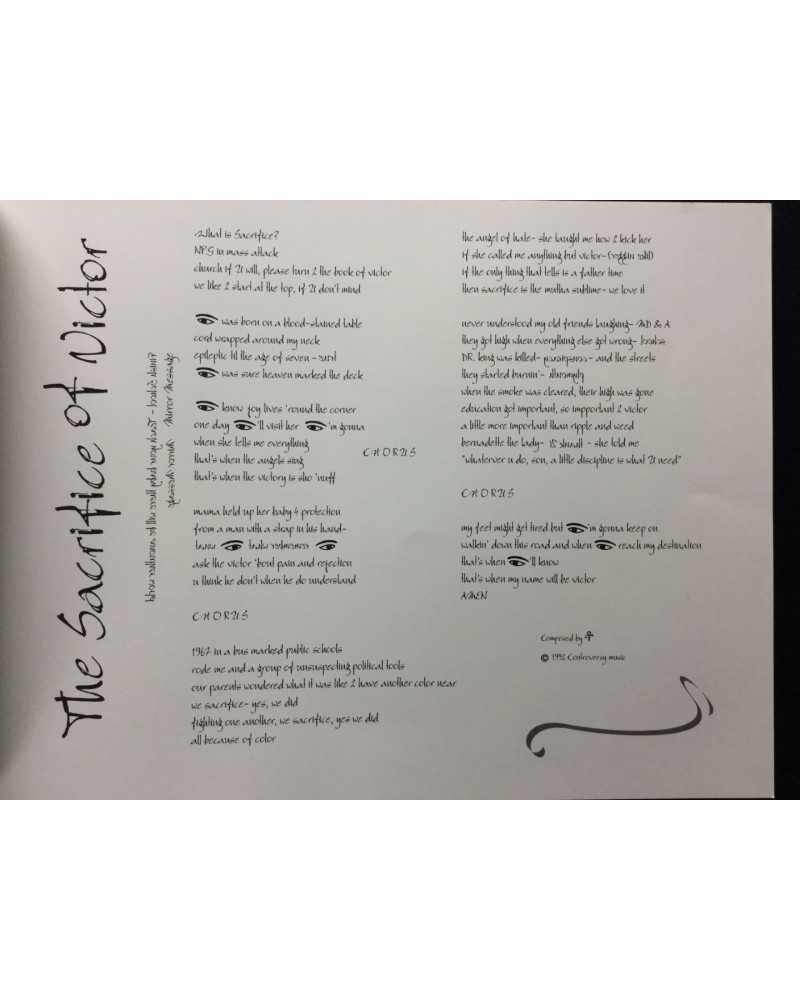 The Sacrifice of Victor
Mirror Message
What is Sacrifice?
NPG in mass attack
church if U will, please turn 2 the book of victor
we like 2 start at the top, if U don't mind
👁 was born on a blood-stained table
cord wrapped around my neck
epileptic til the age of seven -
👁 was sure heaven marked the deck
👁 know joy lives 'round the corner
one day 👁'll visit her 👁'm gonna
when she tells me everything
that's when the angels sing
that's when the victory is sho 'nuff
CHORUS
mama held up her baby 4 protection
from a man with a strap in his hand-
👁 👁
ask the victor 'bout pain and rejection
u think he don't when he do understand
CHORUS
1967 in a bus marked public schools
rode me and a group of unsuspecting political tools
our parents wondered what it was like 2 have another color near
we sacrifice- yes, we did
fighting one another, we sacrifice, yes we did
all because of color
the angel of hate- she taught me how 2 kick her
if she called me anything but victor-
if the only thing that tells is a father time
then sacrifice is the mutha sublime- we love it
never understood my old friends laughing- MD & A
they got high when everything else got wrong-
DR. king was killed- - and the streets
they started burnin'-
when the smoke was cleared, their high was gone
education got important, so important 2 victor
a little more important than ripple and weed
bernadette the lady- - she told me
"whatever u do, son, a little discipline is what U need"
CHORUS
my feet might get tired but 👁'm gonna keep on
walkin' down this road and when 👁 reach my destination
that's when 👁'll know
that's when my name will be victor
AMEN
Composed by
© 1992 Controversy music